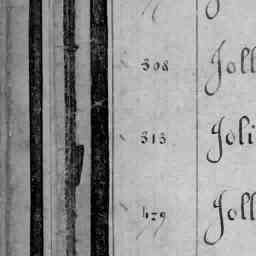 308 Joll
313 Joli
479 Joll